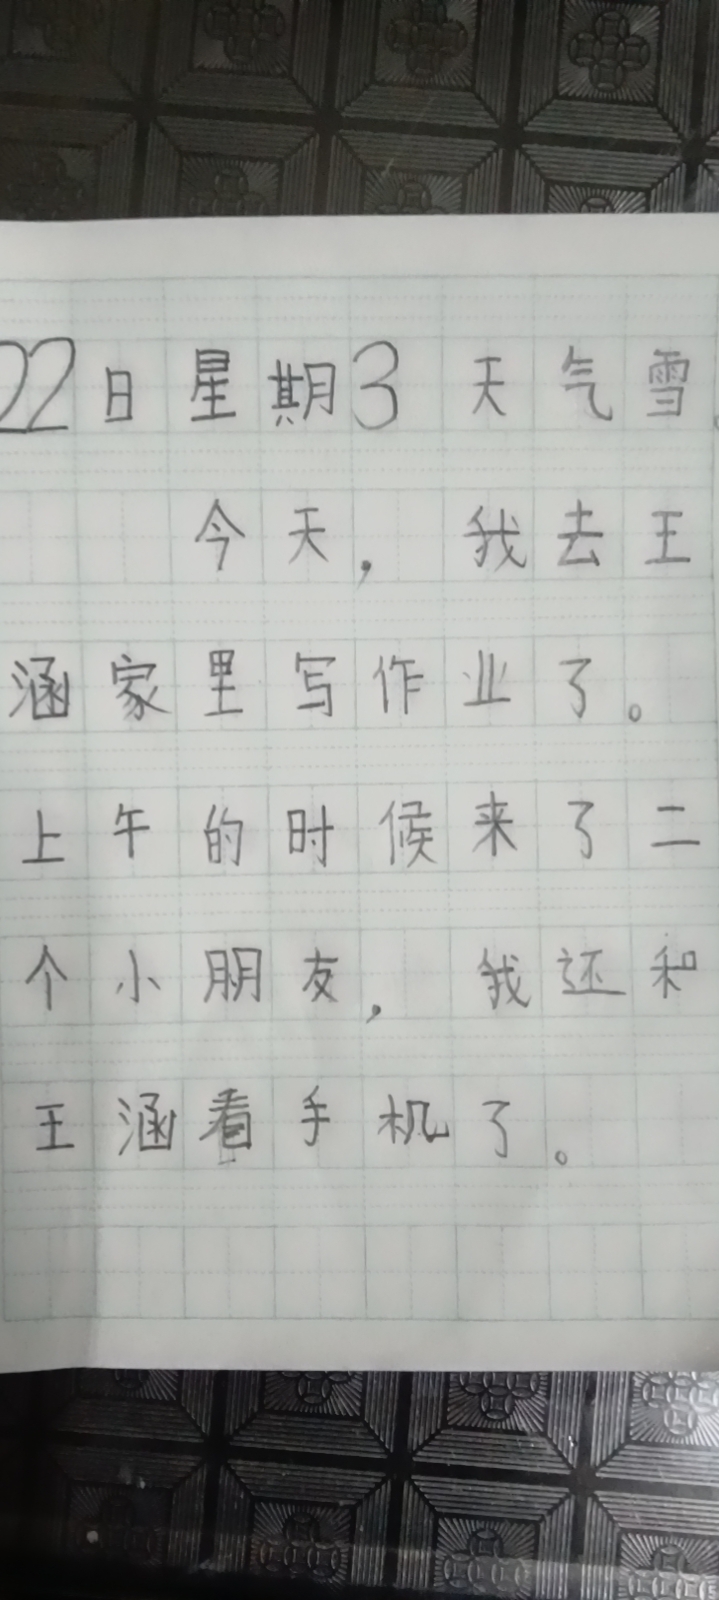 22日星期3 天气雪
今天，我去王
涵家里写作业了。
上午的时候来了二
个小朋友，我还和
王涵看手机了。